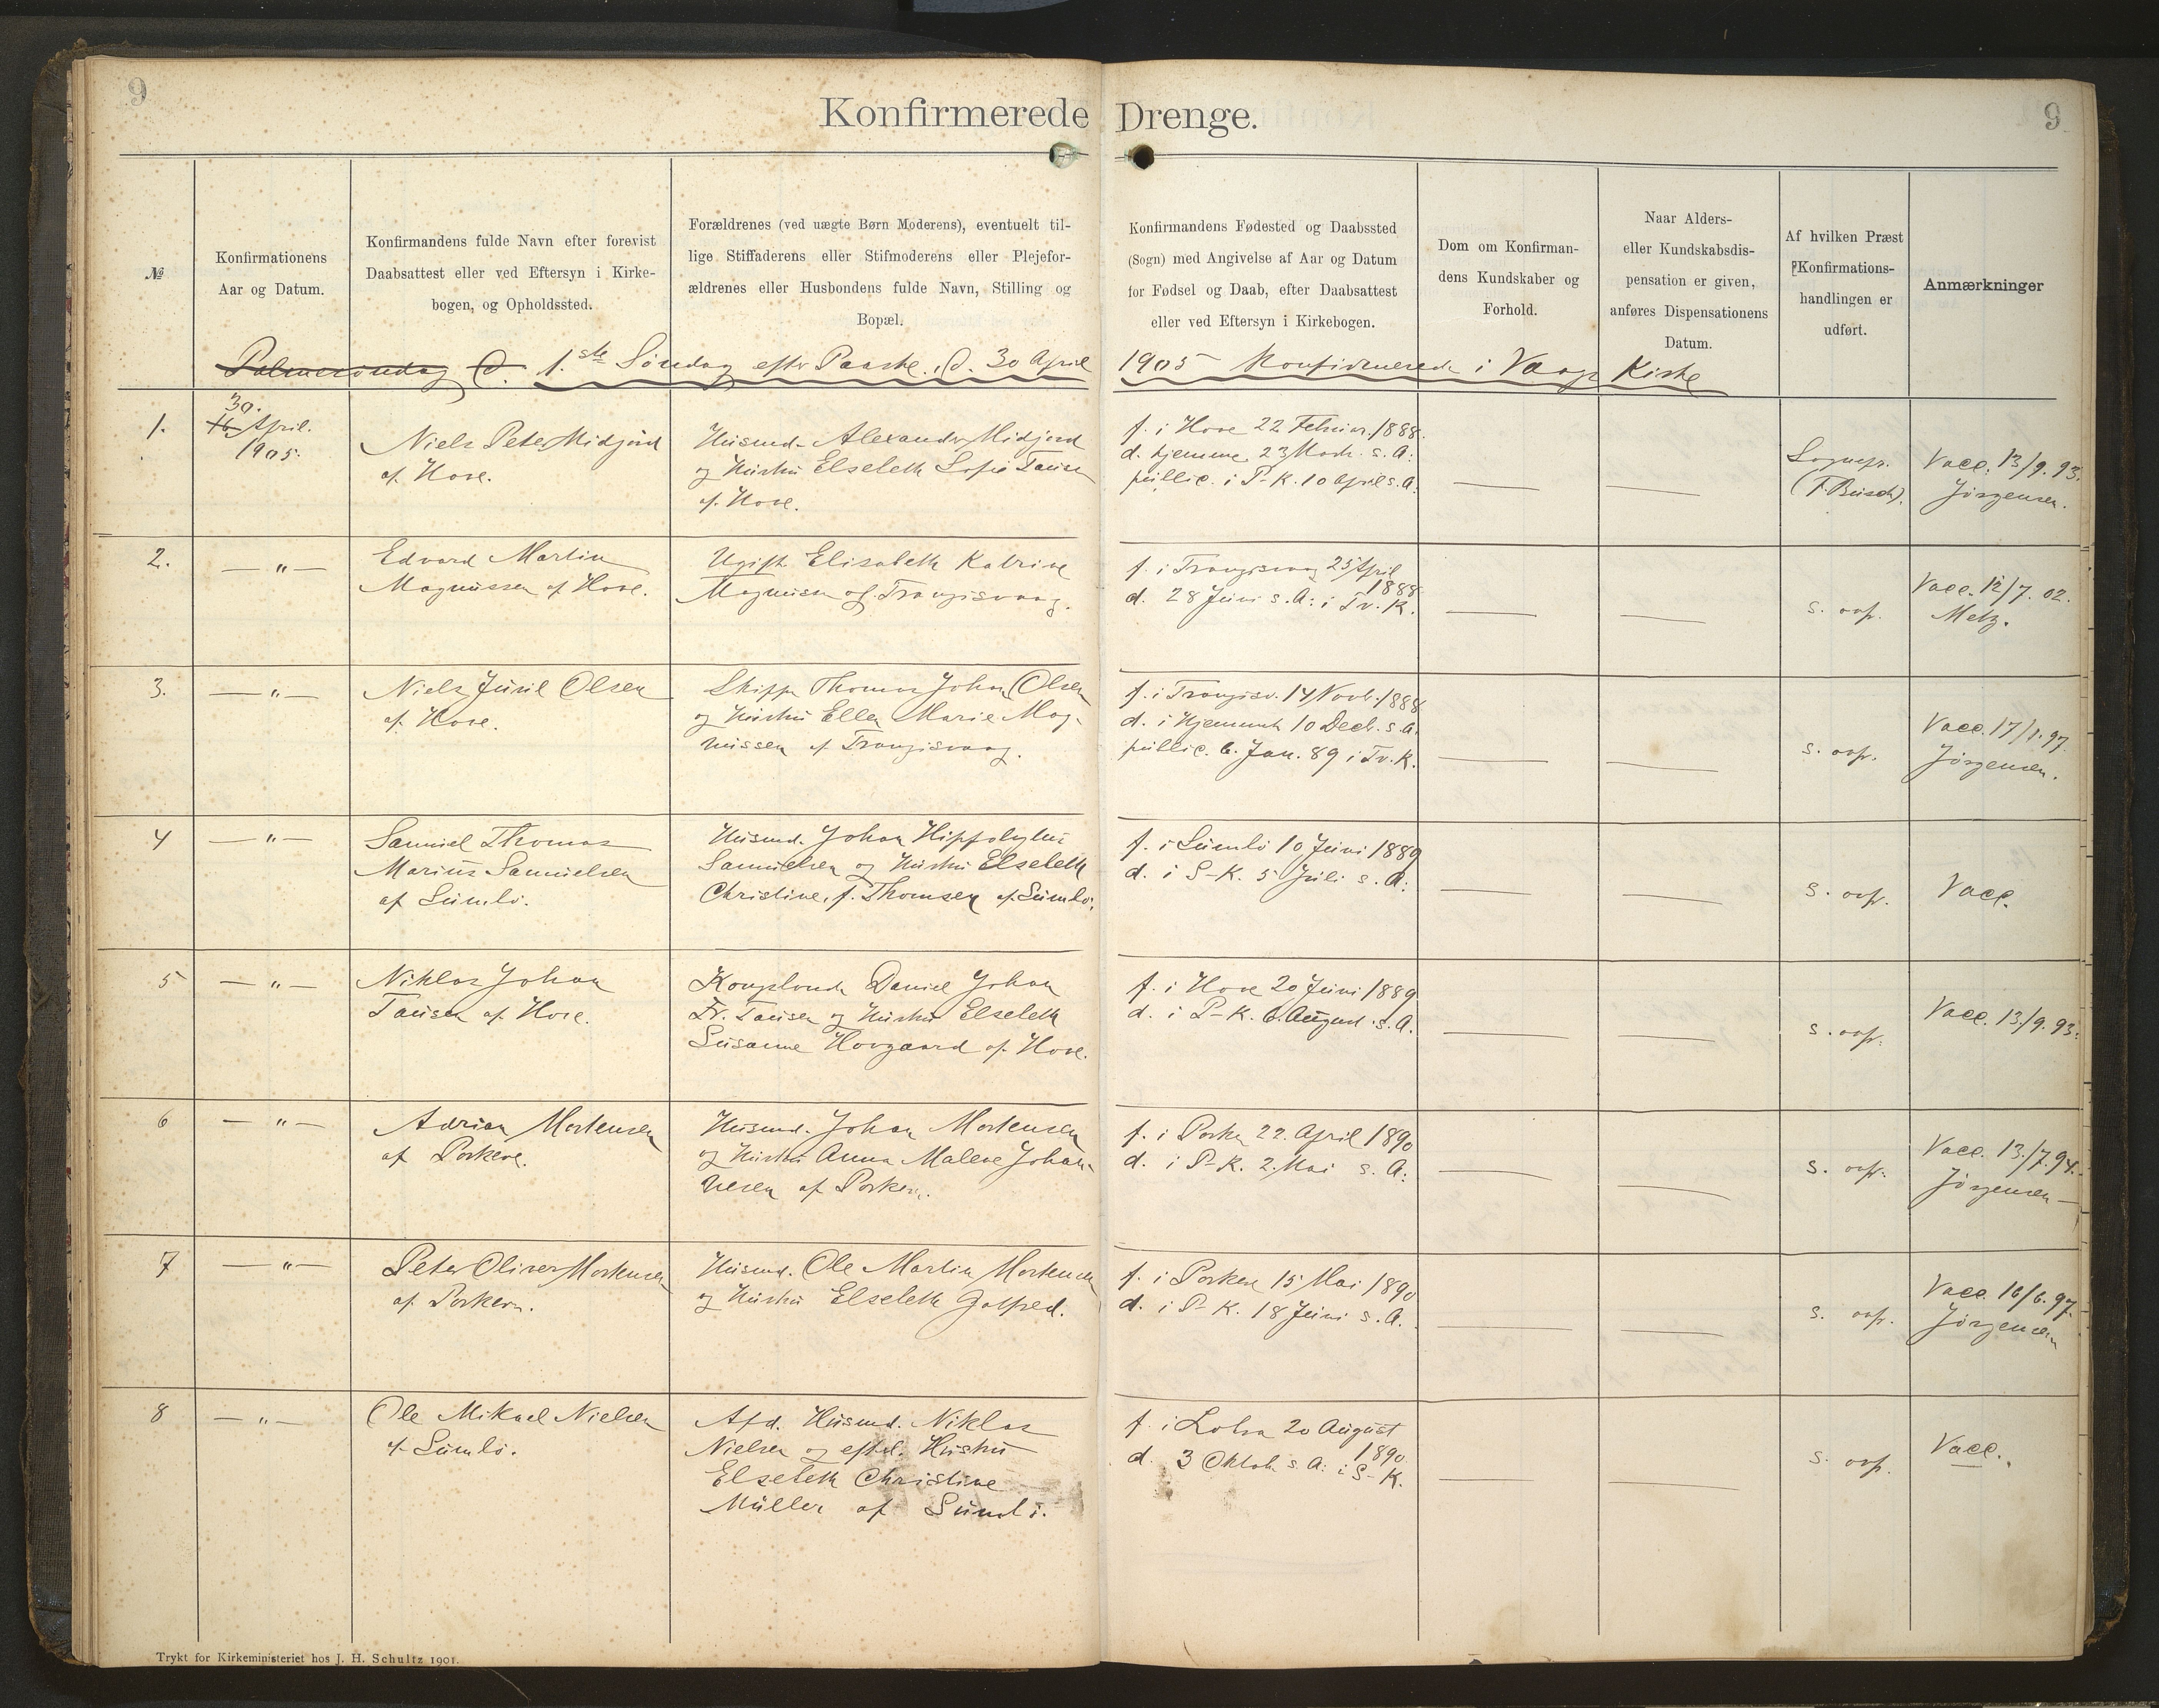 9
Konfirmerede Drenge.
9
№
Konfirmationens
Aar og Datum.
Konfirmandens fulde Navn efter forevist
Daabsattest eller ved Eftersyn i Kirke-
bogen, og Opholdssted.
Forældrenes (ved uægte Børn Moderens), eventuelt til-
lige Stiffaderens eller Stifmoderens eller Plejefor-
ældrenes eller Husbondens fulde Navn, Stilling og
Bopæl.
Konfirmandens Fødested og Daabssted
(Sogn) med Angivelse af Aar og Datum
for Fødsel og Daab, efter Daabsattest
eller ved Eftersyn i Kirkebogen.
Dom om Konfirman-
dens Kundskaber og
Forhold.
Naar Alders-
eller Kundskabsdis-
pensation er given,
anføres Dispensationens
Datum.
Af hvilken Præst
Konfirmations-
handlingen er
udført.
Anmærkninger
Palmesøndag d. 1.ste Søndag eftr Paaske, d. 30 April 1905 Konfirmerede i Vaags Kirke
1.
30.
16 April.
1905.
Niels Peter Midjord
af Hove.
Husmd. Alexander Midjord
og Hustru Elsebeth Sofie Tausen
af Hove.
f. i Hove 22 Februar. 1888.
d. hjemme 23 Marts. s. A:
public. i P-K. 10 April s. A:
Sognepr.
(F. Busch).
Vacc. 13/9. 93.
Jörgensen.
2.
— " —
Edvard Martin
Magnussen af Hove.
Ugift Elisabeth Katrine
Magnussen af Trangisvaag.
f. i Trangisvaag 25 April
1888
d. 28 Juni s. A: i Tv. K.
s. ovf.
Vacc. 12/7. 02.
Metz.
3.
— " —
Niels Juul Olsen
af Hove.
Skipper Thomas Johan Olsen
og Hustru Ellen Marie Mag-
nussen af Trangisvaag.
f. i Trangisv. 14 Novb. 1888
d. i Hjemmet 10 Decb. s. A.
public. 6. Jan. 89 i Tv. K.
s. ovf.
Vacc. 17/1. 97.
Jörgensen.
4
— " —
Samuel Thomas
Marius Samuelsen
af Sumbö.
Husmd. Johan Hippolytus
Samuelsen og Hustru Elsebeth
Christine, f. Thomsen af Sumbö.
f. i Sumbö 10 Juni 1889
d. i S-K. 5 Juli s. A:
s. ovf.
Vacc.
5
— " —
Niklas Johan
Tausen af Hove.
Kongsbonde Daniel Johan
Fr. Tausen og Hustru Elsebeth
Susanne Hovgaard af Hove.
f. i Hove 20 Juni 1889
d. i P-K. 6. August s. A.
s. ovf.
Vacc. 13/9. 93.
6
— " —
Adrian Mortensen
af Porkere.
Husmd. Johan Mortensen
og Hustru Anna Malene Johan-
nesen af Porkere.
f. i Porkere 22. April 1890
d. i P-K. 2. Mai s. A:
s. ovf.
Vacc. 13./7. 94.
Jörgensen
7
— " —
Peter Oliver Mortensen
af Porkere.
Husmd. Ole Martin Mortensen
og Hustru Elsebeth Joffred.
f. i Porkere 15 Mai 1890
d. i P-K. 18 Juni s. A.
s. ovf.
Vacc. 16/6. 97.
Jörgensen
8
— " —
Ole Mikael Nielsen
af Sumbö.
Afd. Husmd. Niklas
Nielsen og eftl. Hustru
Elsebeth Christine
Müller af Sumbö.
f. i Lobra 20 August
1890
d. 3 Oktob. s. A: i S-K.
s. ovf.
Vacc.
Trykt for Kirkeministeriet hos J. H. Schultz 1901.